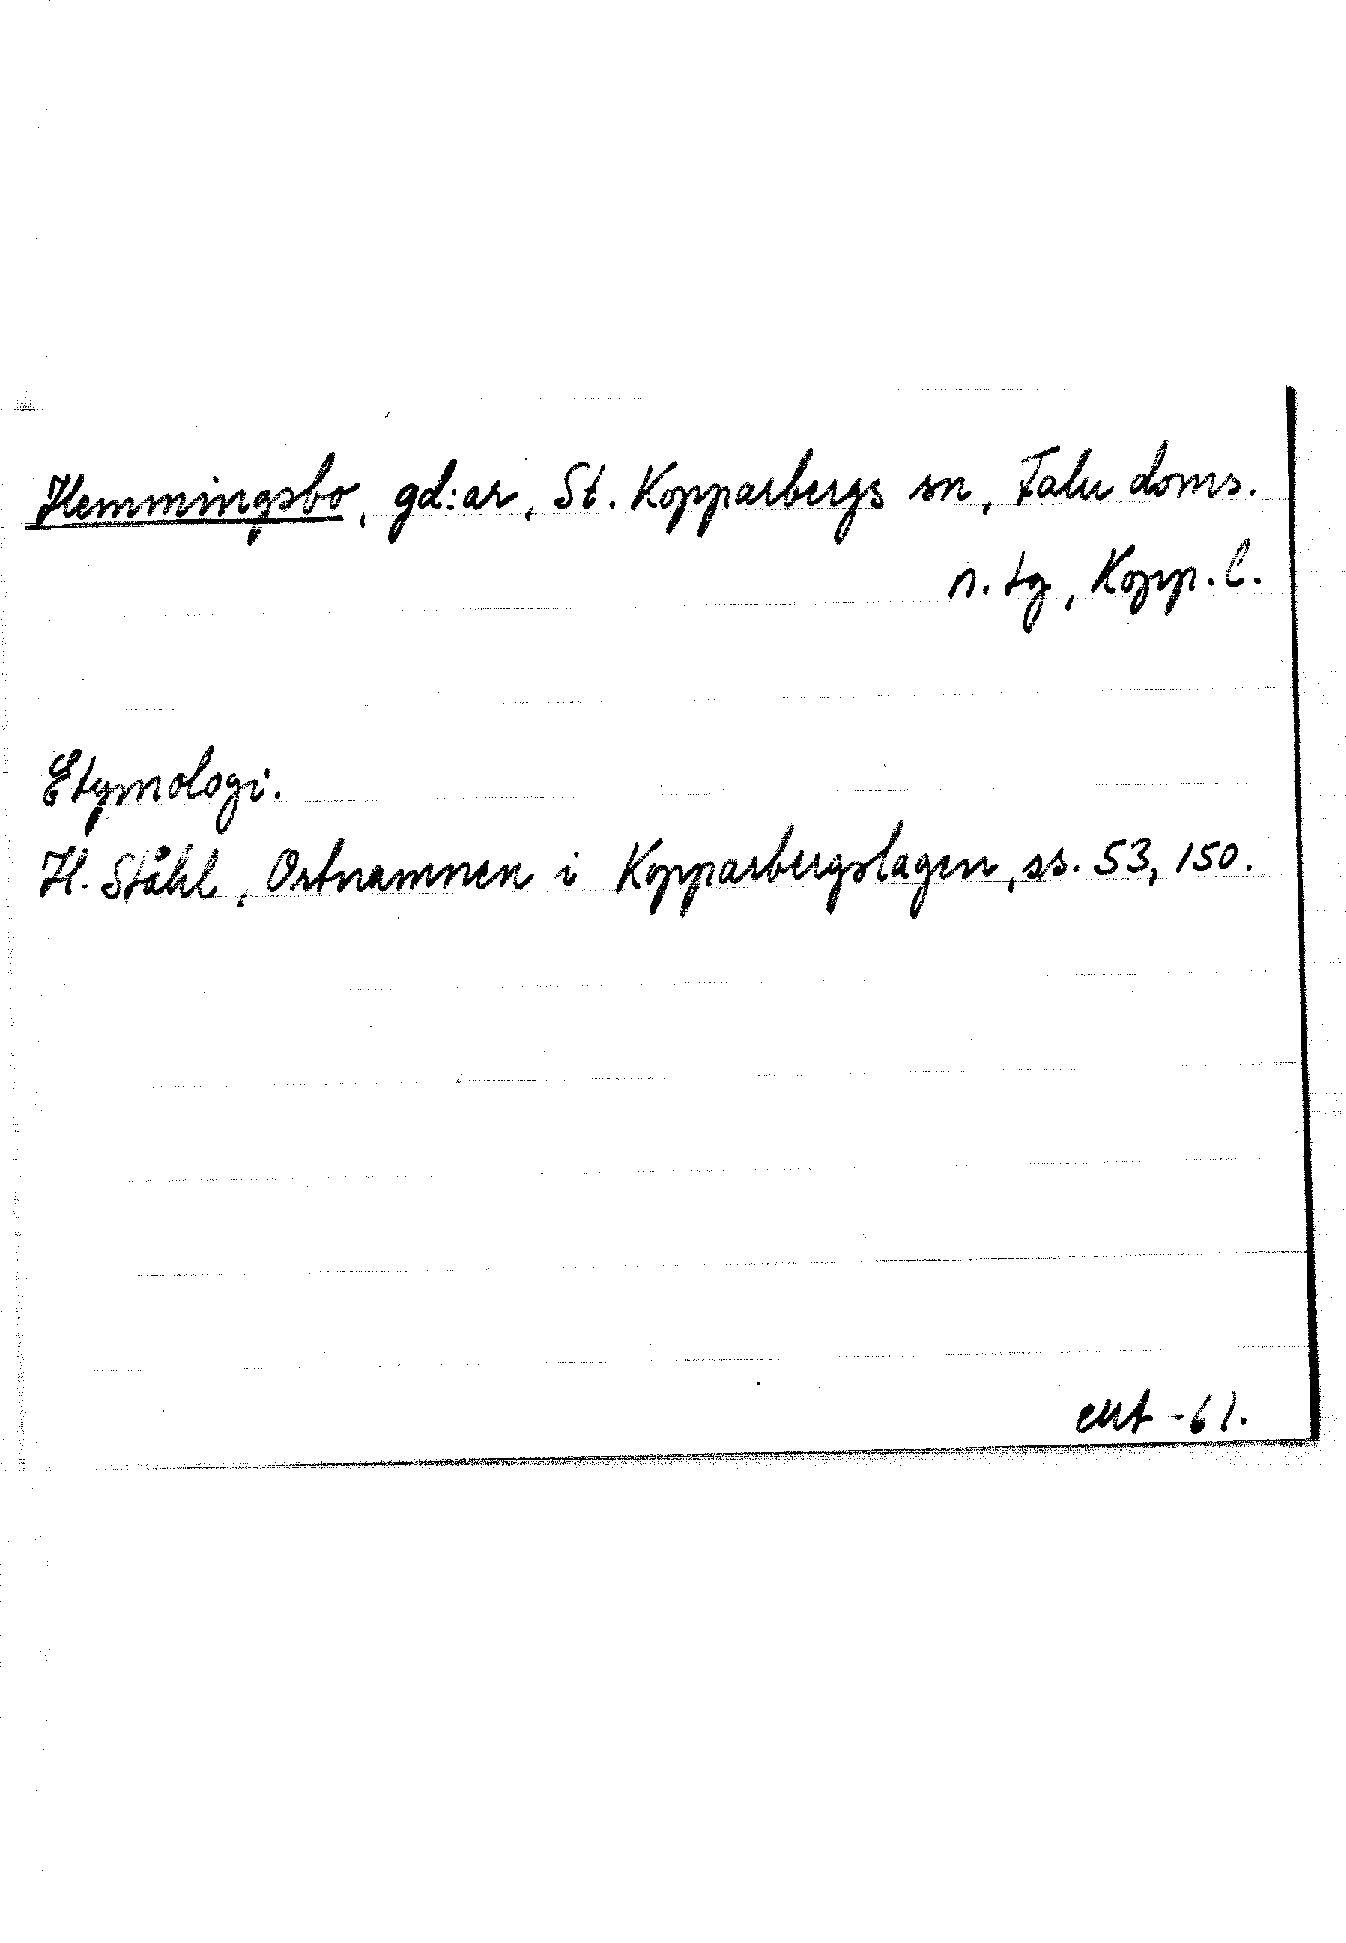 Hemmingsbo, gd:ar, St. Kopparbergs sn, Falu doms.
n. tg, Kopp. l.
Etymologi.
H. Ståhl, Ortnamnen i Kopparbergslagen, ss. 53, 150.
-61.